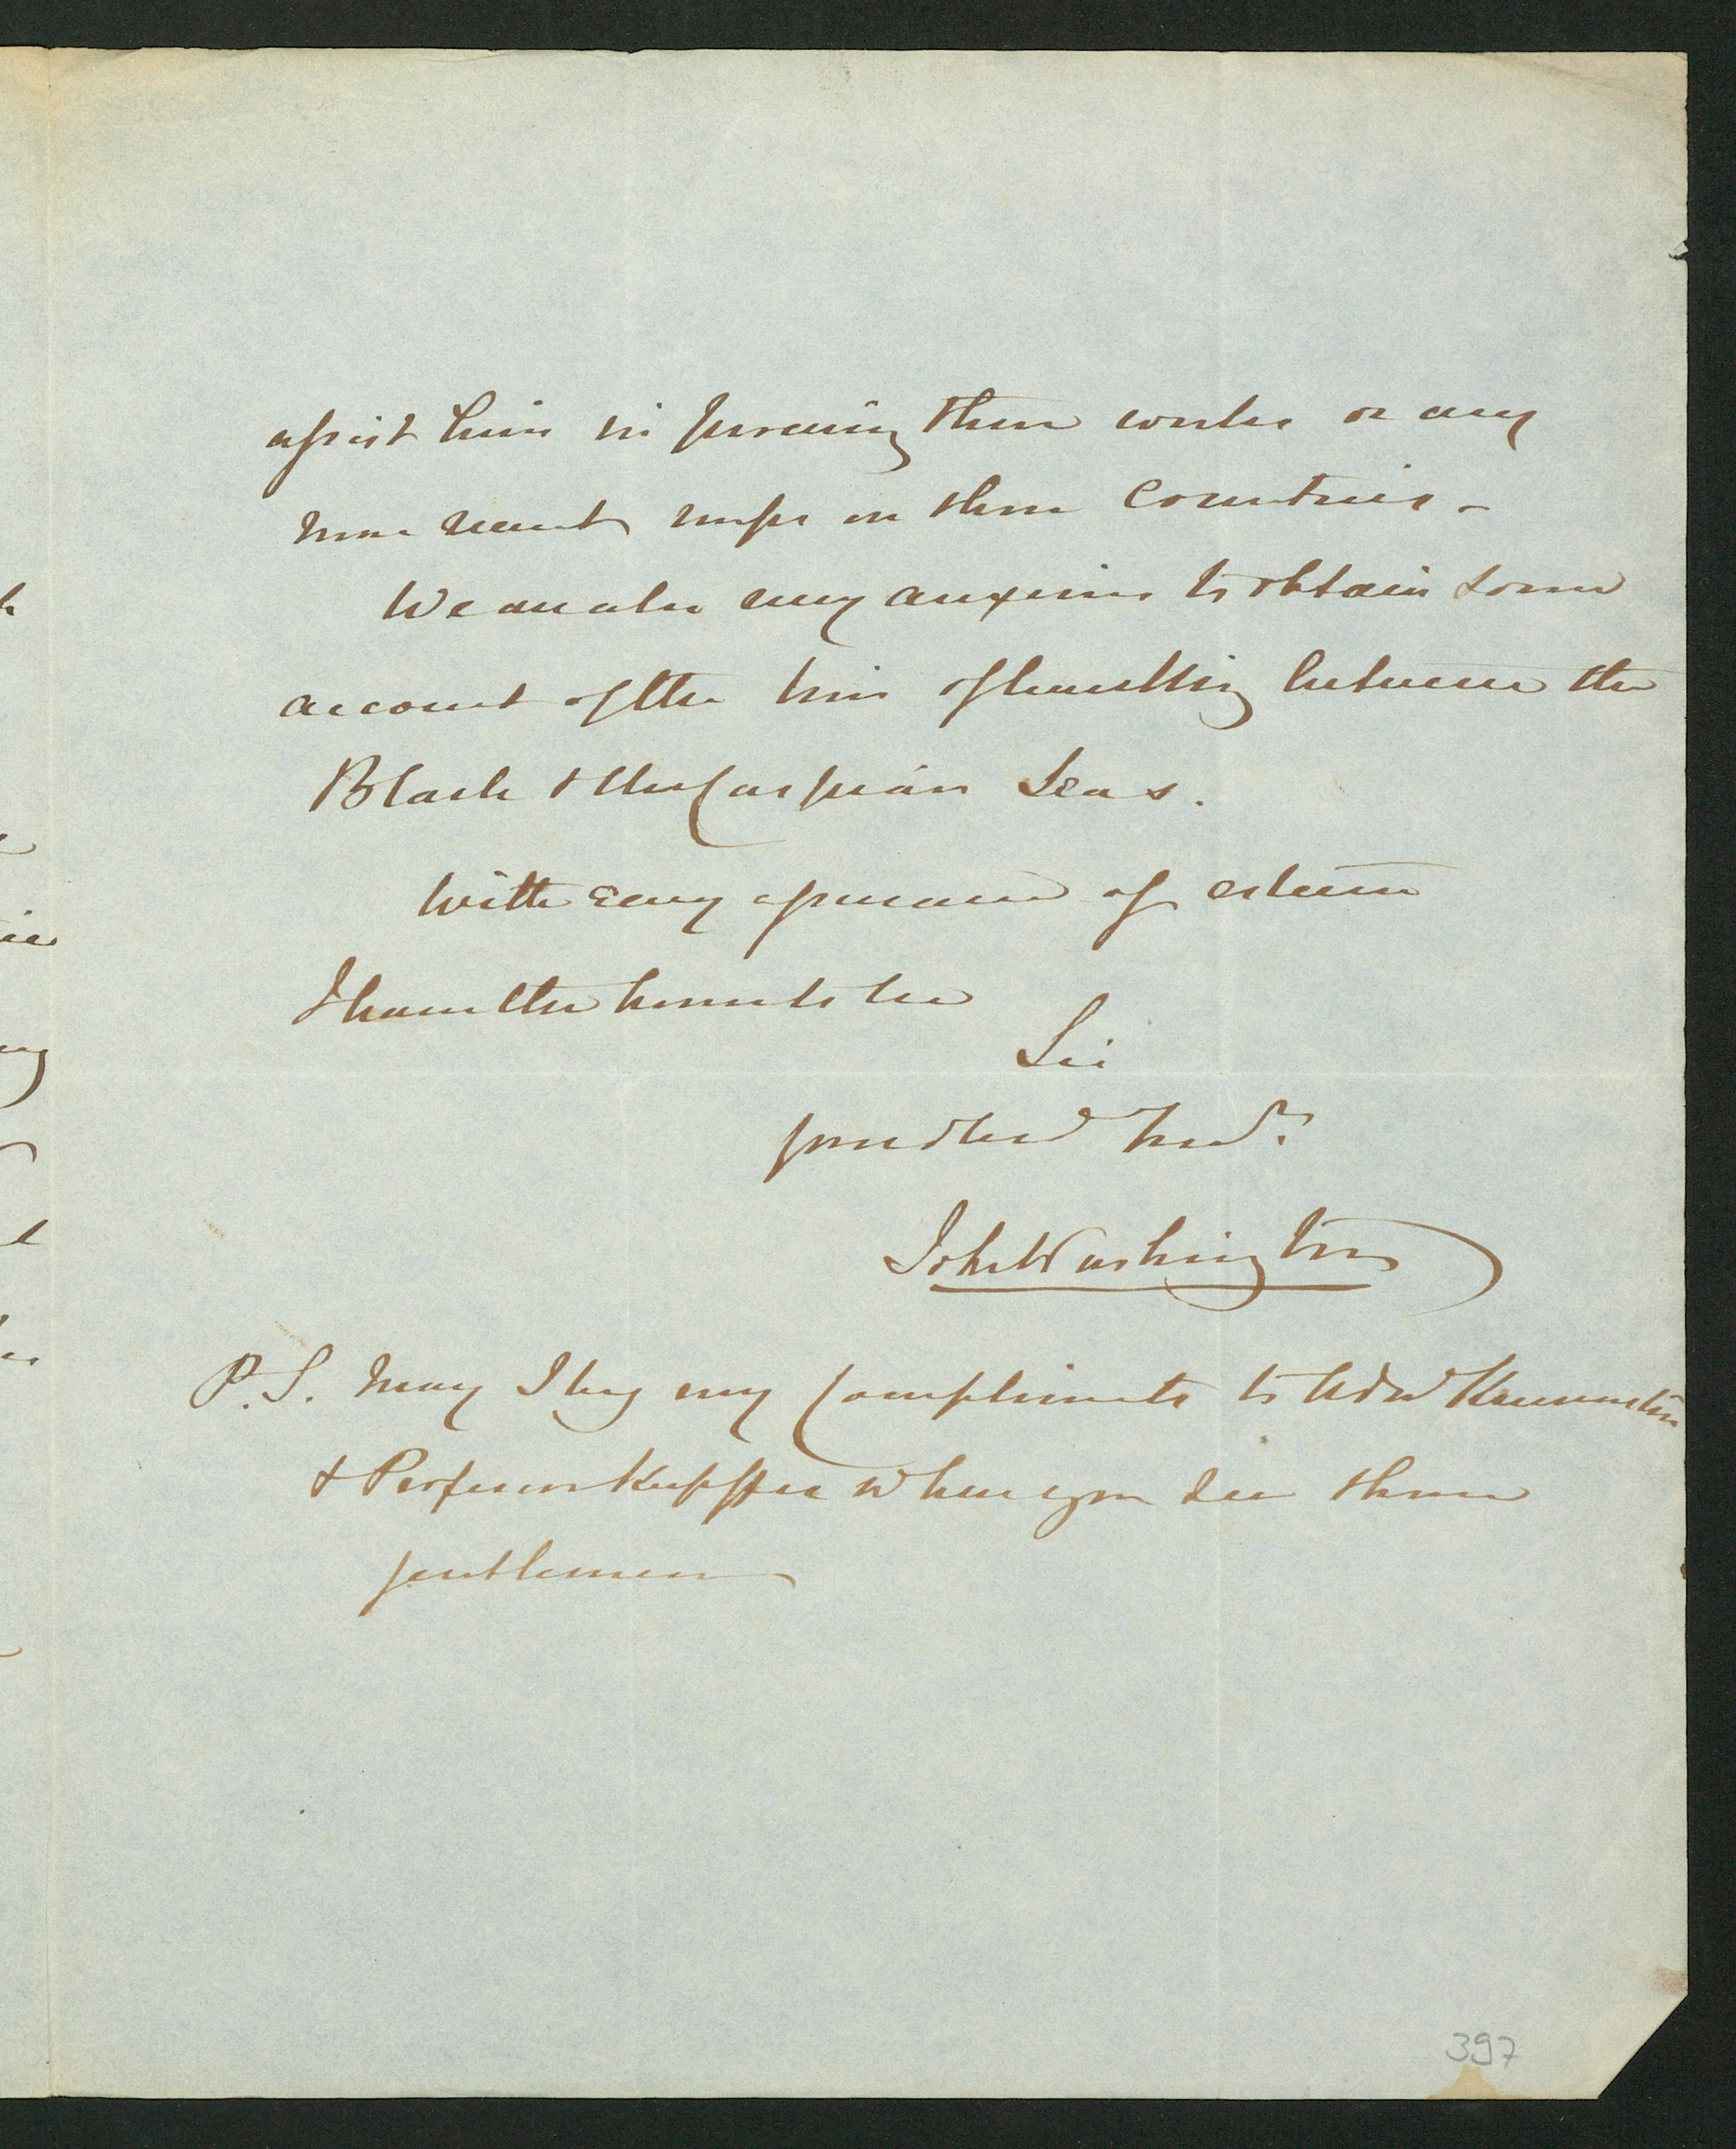 assist him in procuring these works or any
more recent maps on these Countries. -
We are also very anxious to obtain some
account of the line of levelling between the
Black & the Caspian Seas.
With every assurance of esteem
I have the honor to be
Sir
your obed Serv.t
John Washington
P.S. May I beg my Compliments to Adm Krusenstern
& Professor Kupffer when you see those
gentlemen
397